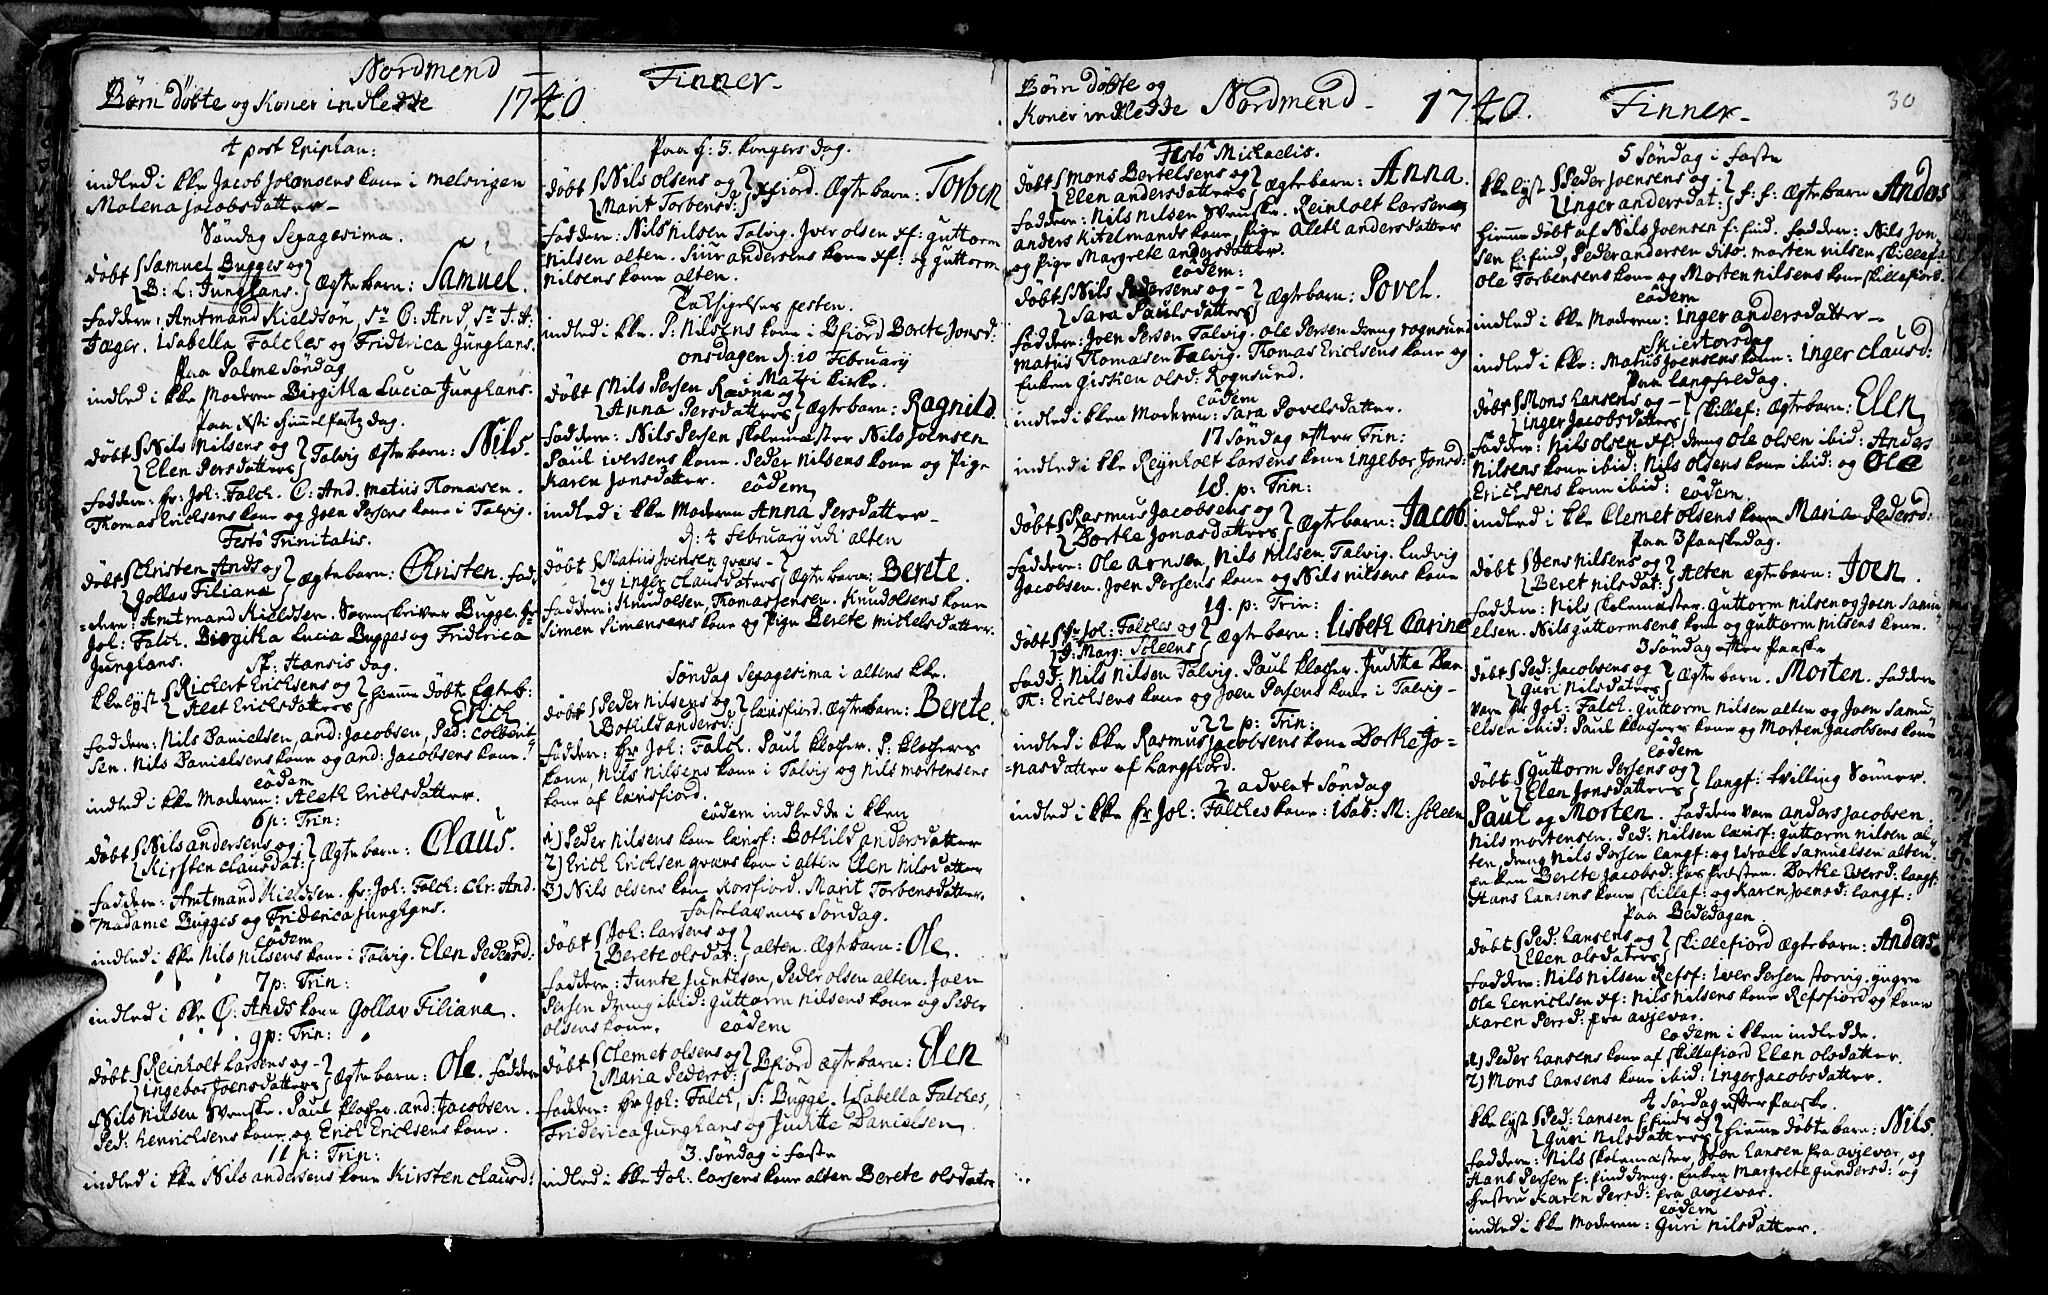 Nordmend
Børn døbte og Koner indledde 1740. Finner.
4 post Epiphan:
indled i kke Jacob Johansens kone i Melsvigen
Malena Jacobsdatter
Søndag Sexagesima.
døbt Samuel Bugges og
B: L: Junghans. Ægte barn: Samuel.
faddere: Amtmand Kieldsøn, Sr C: And, Sr J: A:
Jæger. Isabella Falches og Friderica Junghans.
Paa Palme Søndag
indled i kke Moderen Birgitha Lucia Junghans.
Paa Xsti Himmelfartz dag.
døbt Nils Nilsens og
Elen Persdatters Talvig Ægte barn: Nils.
faddere: hr Joh: Falch. C: And. Matius Thomæsen.
Thomas Erichsens kone og Joen Persens kone i Talvig.
Festo Trinitatis.
døbt Christen Ands og
Gollav Filiana Ægte barn: Christen. fad=
=dere: Amtmand Kieldsen. Sorenskriver Bugge. hr
Joh: Falch. Birgitha Lucia Bugges og Friderica
Junghans. St: Hansis dag.
kke lyst Richert Erichsens og
Alet Erichsdatters hiemme døbte Egteb:
Erich
faddere: Nils Danielsen, and: Jacobsen, Ped: Colbent
sen. Nils Danielsens kone og and: Jacobsens kone.
eodem
indled i kke Moderen: Aleth Erichsdatter.
6 p: Trin:
døbt Nils andersens og
Kirsten Clausdat: Ægte barn: Claus.
faddere: Amtmand Kieldsen. hr: Joh: Falch: Chr: And.
Madame Bugges og Friderica Junghans.
eodem
indled i kke Nils Nilsens kone i Talvig. Elen Pedersd:
7 p: Trin:
indled i kke C: Ands kone Gollav Filiana.
9 p: Trin:
døbt Reinholt Larsens og
Ingebor Joensdatters Ægte barn: Ole. faddere
Nils Nilsen Svenske. Paul Klocher. and: Jacobsen.
Ped: Henrichsens kone og Erich Erichsens kone.
11 p: Trin:
indled i kke Nils andersens kone Kirsten Clausd:
Paa H: 3. Kongers dag.
døbt Nils Olsens og
Marit Torbensd: Xfiord. Ægte barn: Torben
faddere: Nils Nilsen Talvig. Iver Olsen Xf: Guttorm
Nilsen alten. Siur andersens kone Xf: og Guttorm
Nilsens kone alten.
Taksigelses festen.
indled i kke. P: Nilsens kone i Bfiord Berte Jonsd:
onsdagen d: 10 February
i Mazi kirke.
døbt Nils Persen Ravna og
Anna Persdatters Ægte barn: Ragnild.
faddere: Nils Persen skolemæster Nils Joensen
Paul Iversens kone. Peder Nilsens kone og Pige
Karen Jonsdatter. eodem
indled i kke Moderen Anna Persdatter
d: 4 February udi alten
døbt Matius Joensen qvans
og Inger Clausdaters Ægte barn: Berete.
faddere: Knud Olsen, Thomas Jensen. Knud Olsens kone
Simen Simensens kone og Pige Berete Michelsdatter.
Søndag Sexagesima i altens kke.
døbt Peder Nilsens og
Bothild andersd: Leirsfiord. Ægte barn: Berete.
faddere: hr Joh: Falch. Paul Klocher. P: Klochers
kone, Nils Nilsens kone i Talvig og Nils Mortensens
kone af Leirsfiord.
eodem indledde i kken
1) Peder Nilsens kone Leirsf: Bothild andersdatter
2) Erich Erichsen qvans kone i alten Elen Nilsdatter
3) Nils Olsens kone Korsfiord. Marit Torbensdatter.
fastelavens Søndag.
døbt Joh: Larsens og
Berete Olsdat: alten. Ægte barn: Ole.
faddere: Junte Juntesen, Peder Olsen alten. Joen
Persen dreng ibid: Guttorm Nilsens kone og Peder
Olsens kone. eodem
døbt Clemet Olsens og
Maria Pedersd: Bfiord Ægte barn: Elen
faddere: hr Joh: Falch, S: Bugge. Isabella Falches,
Friderica Junghans og Judithe Danielsen
3. Søndag i faste
indled i kke Joh: Larsens kone alten Berete Olsdater
Børn døbte og
Koner indledde Nordmend 1740. Finner 30
Festo Michaelis.
døbt Mons Bertelsens og
Elen andersdatters Ægte barn: Anna.
faddere: Nils Nilsen Svenske. Reinholt Larsen
anders Kitelmands kone, Pige Aleth andersdatter
og Pige Margrete andersdatter.
eodem:
døbt Nils Pedersens og
Sara Paulsdatters Ægte barn: Povel.
faddere: Joen Persen Talvig. Ole Persen dreng Rognsund
Matius Thomæsen Talvig. Thomas Erichsens kone og
Enken Gisken Olsd: Rognsund.
eodem
indled i kken Moderen: Sara Povelsdatter.
17 Søndag efter Trin:
indled i kke Reynholt Larsens kone Ingebor Jonsd:
18. p: Trin:
døbt Rasmus Jacobsens og
Dorthe Jonasdatters Ægte barn: Jacob.
faddere: Ole Arnsen, Nils Nilsen Talvig. Ludvig
Jacobsen. Joen Persens kone og Nils Nilsens kone
19. p: Trin:
døbt hr Joh: Falches og
I: Marg: Soleens Ægte barn: Lisbeth Carine
fadd: Nils Nilsen Talvig. Paul Klocher. Judithe Dan
Th: Erichsens kone og Joen Persens kone i Talvig
22 p: Trin:
indled i kke Rasmus Jacobsens kone Dorthe Jo=
=nasdatter af Langfiord.
2 advent Søndag
indled i kke hr Joh: Falches kone: Isab: M: Soleen
5 Søndag i faste
kke lyst Peder Joensens og
Inger andersdat: f: f: Ægte barn Anders
hiemme døbt af Nils Joensen f: find. faddere: Nils Jon
sen f: find, Peder andersen dito. Morten Nilsen, skillef:
Ole Torbensens kone og Morten Nilsens kone skillefiord.
eodem
indled i kke Moderen: Inger andersdatter
Skiertorsdag
indled i kke: Matius Joensens kone: Inger Clausd:
Paa Langfredag.
døbt Mons Hansens og
Inger Jacobsdatters skillef: Ægte barn: Elen
faddere: Nils Olsen Xf: dreng Ole Olsen ibid: Anders
Nilsens kone ibid: Nils Olsens kone ibid: og Ole
Erichsens kone ibid: eodem
indled i kke Clemet Olsens kone Maria Pedersd:
Paa 3 Paaskedag.
døbt Jens Nilsens og
Beret Nilsdat: Alten Ægte barn: Joen.
faddere: Nils skolemæster. Guttorm Nilsen og Joen Samu
elsen. Nils Guttormsens kone og Guttorm Nilsens kone.
3 Søndag efter Paaske
døbt Ped: Jacobsens og
Guri Nilsdatters Ægte barn. Morten. faddere
vare hr Joh: Falch. Guttorm Nilsen alten og Joen Samu
=elsen ibid: Paul Klochers kone og Morten Jacobsens kone
eodem
døbt Guttorm Persens og
Elen Jonsdatters Langf: tvilling Sønner.
Paul og Morten. faddere vare anders Jacobsen.
Nils Mortensen. Ped: Nilsen Leirsf: Guttorm Nilsen al=
ten, dreng Nils Persen Langf: og Israel Samuelsen alten
enken Berete Jacobsd: hos Præsten. Dorthe Eversd: Langf:
Hans Larsens kone skillef: og Karen Joensd: Langf:
Paa Bededagen.
døbt Ped: Hansens og
Elen Olsdatters skillefiord Ægte barn: Anders
faddere: Nils Nilsen Refsf: Iver Persen Storvig. Yngre
Ole Henrichsen Xf: Nils Nilsens kone Refsfiord og kone
Karen Persd: fra avjevar.
eodem i kken indledde.
1) Peder Hansens kone af skillefiord Elen Olsdatter.
2) Mons Hansens kone ibid: Inger Jacobsdatter.
4 Søndag efter Paaske.
kke lyst Ped: Hansen f: finds og
Guri Nilsdatters hiemme døbte barn: Nils.
faddere: Nils skolemæster, Joen Hansen fra avjevar, og
Hans Persen f: find dreng. Enken Margrete Gundersd: og
hustru Karen Persd: fra avjevar.
eodem
indled i kke Moderen: Guri Nilsdatter.